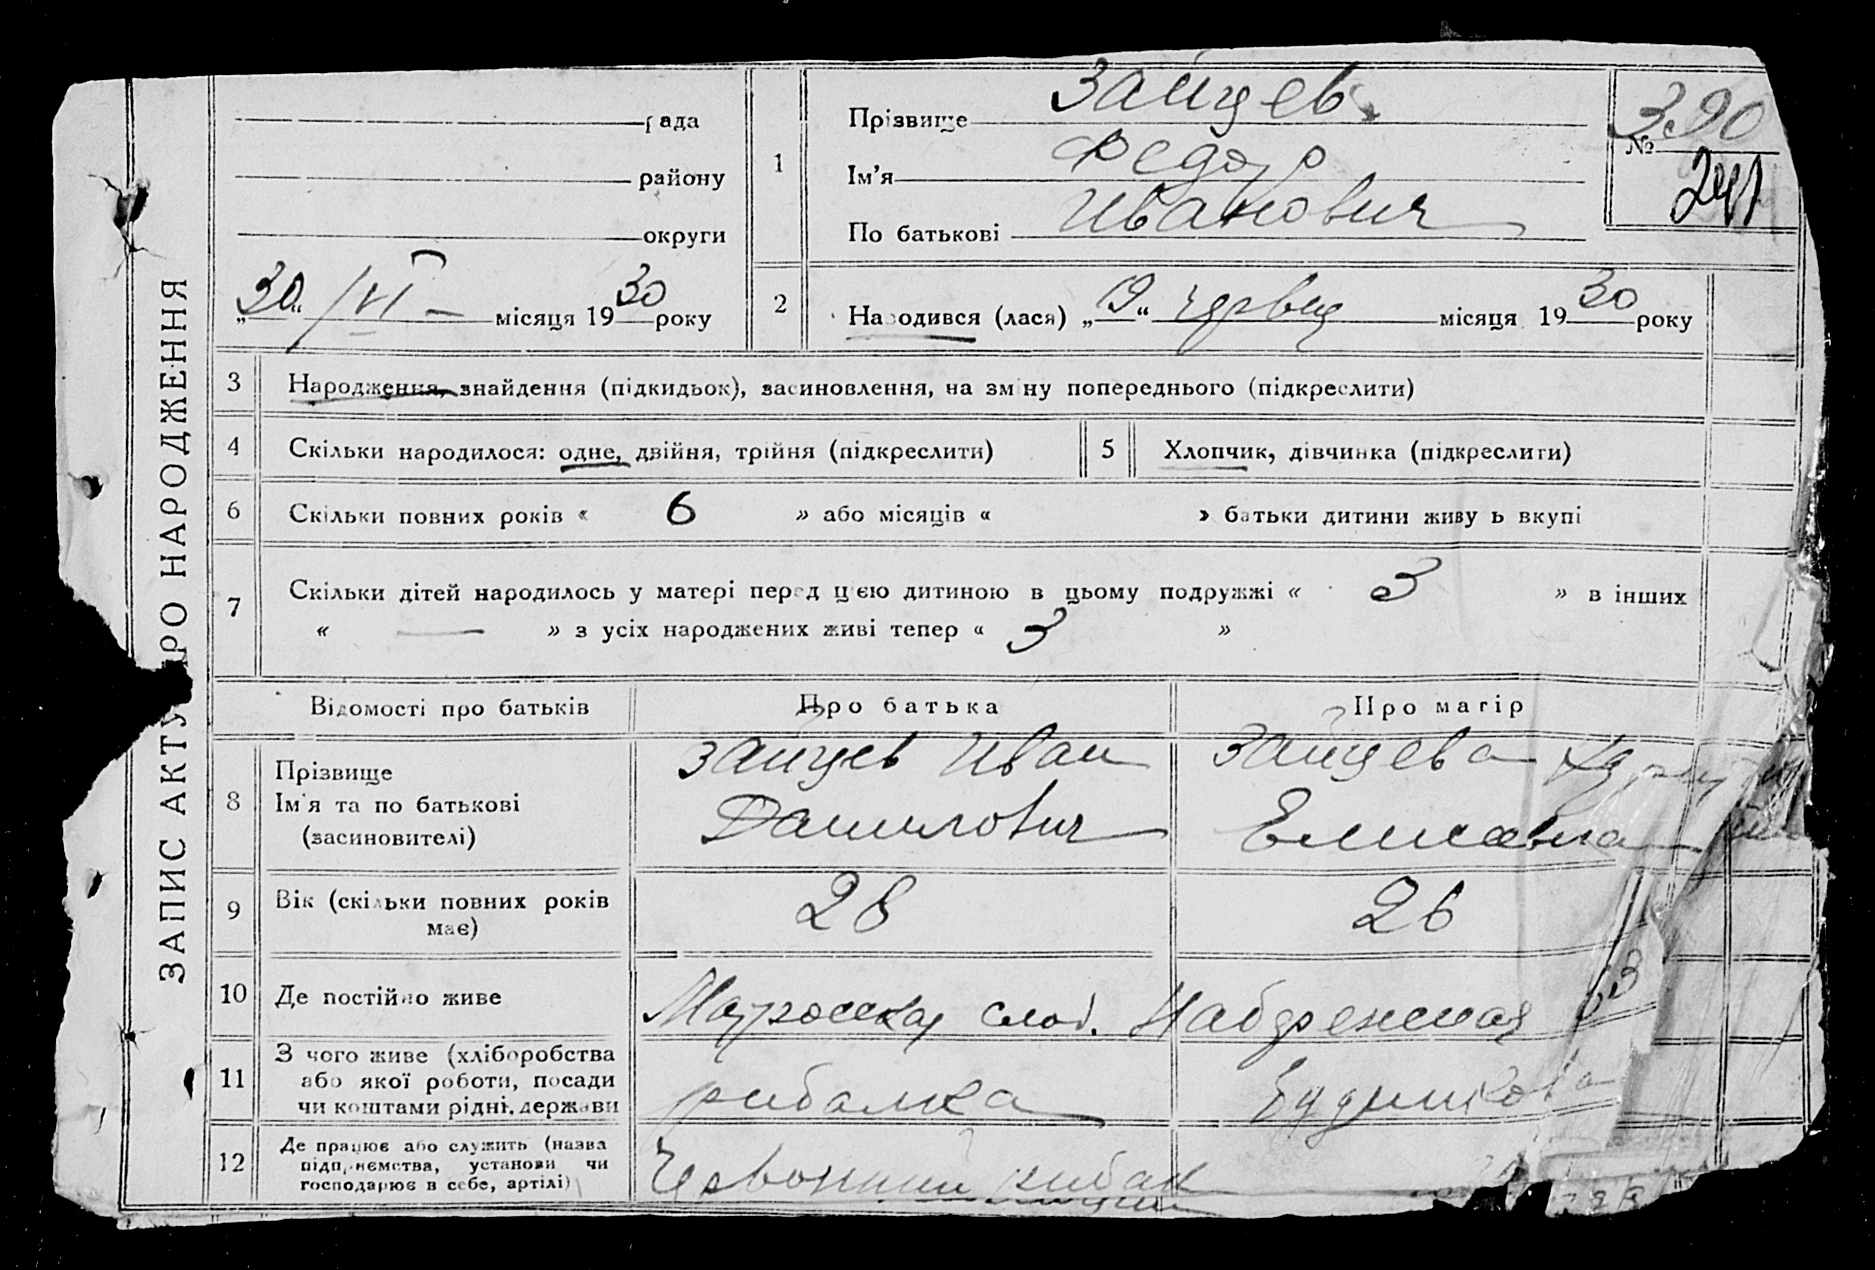 ЗАПИС АКТУ ПРО НАРОДЖЕННЯ
рада
району
округи
„30“ VI місяця 1930 року
1
Прізвище Зайцев
Ім'я Федор
По батькові Иванович
№ 390
241
2
Народився (лася) „19“ червня місяця 1930 року
3 Народження, знайдення (підкидьок), засиновлення, на зміну попереднього (підкреслити)
4 Скільки народилося: одне, двійня, трійня (підкреслити)
5 Хлопчик, дівчинка (підкреслити)
6 Скільки повних років « 6 » або місяців « » батьки дитини живуть вкупі
7 Скільки дітей народилось у матері перед цією дитиною в цьому подружжі « 3 » в інших
« — » з усіх народжених живі тепер « 3 »
Відомості про батьків
Про батька
Про матір
8 Прізвище
Ім'я та по батькові
(засиновителі)
Зайцев Иван
Данилович
Зайцева
9 Вік (скільки повних років
має)
28
26
10 Де постійно живе
слоб. 53
11 З чого живе (хліборобства
або якої роботи, посади
чи коштами рідні, держави
рибалка
12 Де працює або служить (назва
підприємства, установи чи
господарює в себе, артілі)
Червоний рибак